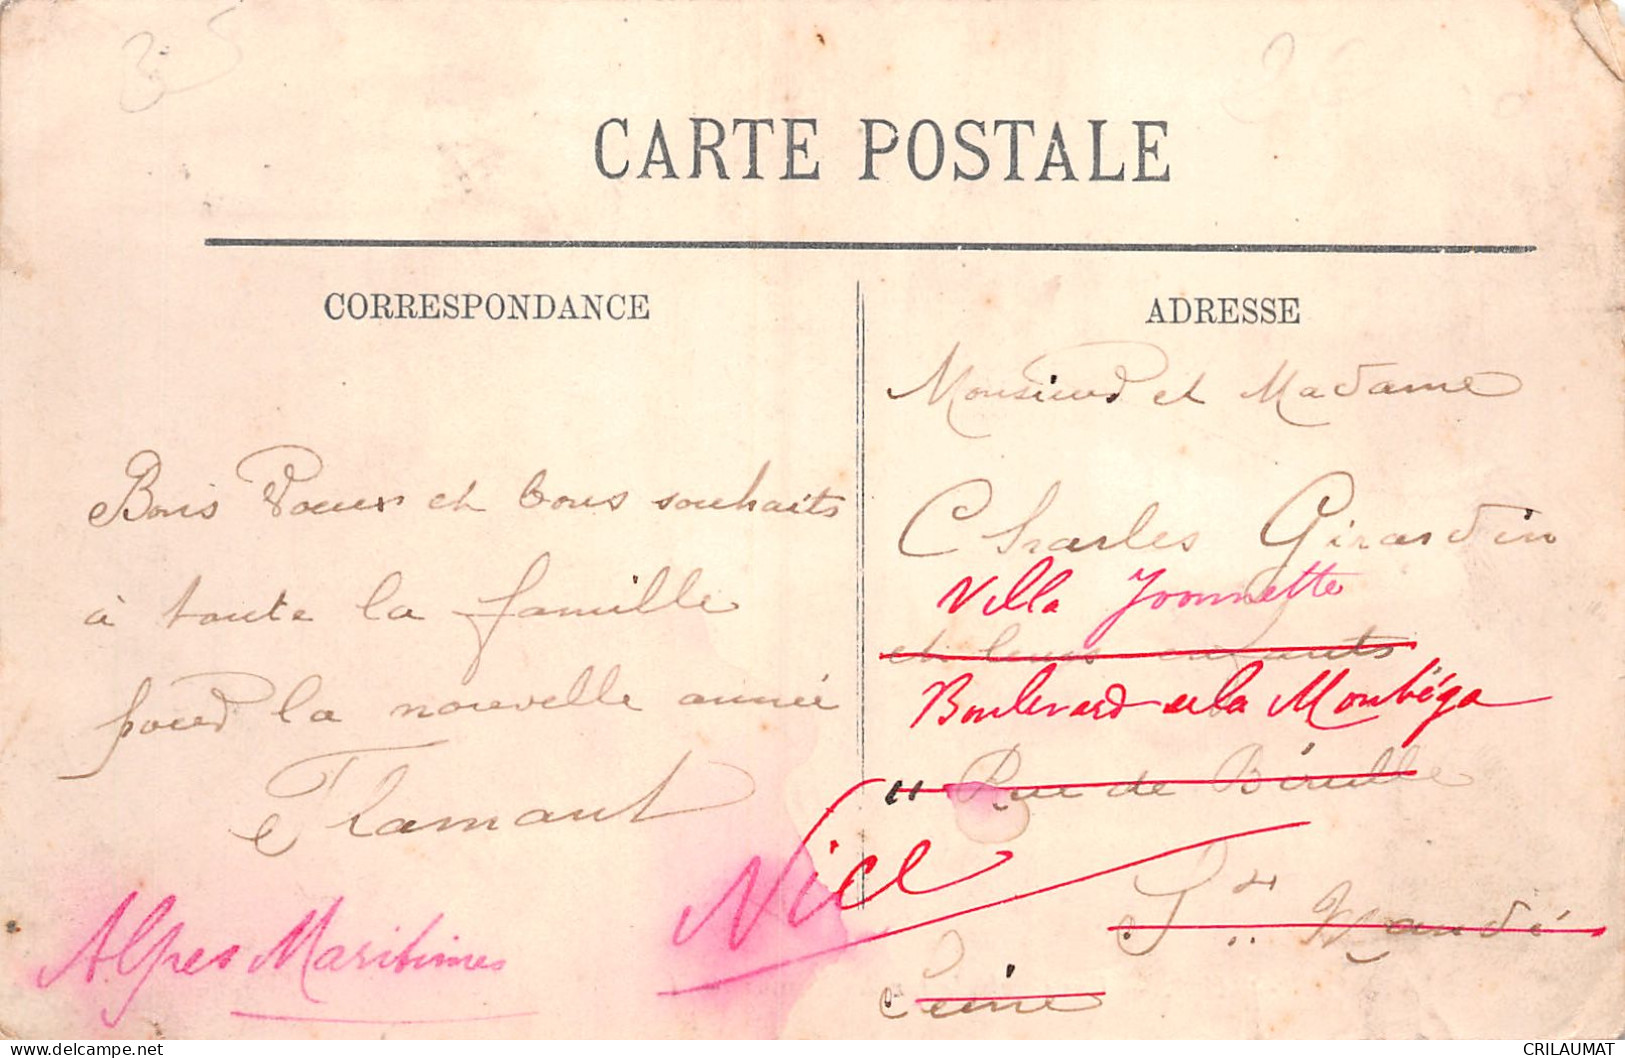 35
CARTE POSTALE
CORRESPONDANCE
Bons Voeux et bons souhaits
à toute la famille
pour la nouvelle année
Flamant
Alpes Maritimes
ADRESSE
Monsieur et Madame
Charles Girardin
Villa Yvonnette
et leurs enfants
Boulevard de la Montéga
11 Rue de Bérulle
Nice
St Mandé
Seine
CRILAUMAT